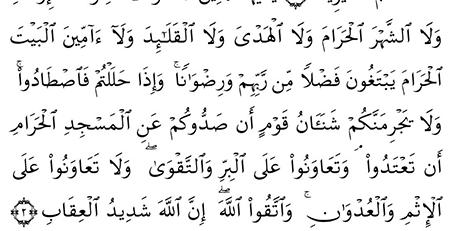 وَلَا ٱلشَّهْرَ ٱلْحَرَامَ وَلَا ٱلْهَدْىَ وَلَا ٱلْقَلَـٰٓئِدَ وَلَآ ءَآمِّينَ ٱلْبَيْتَ
ٱلْحَرَامَ يَبْتَغُونَ فَضْلًا مِّن رَّبِّهِمْ وَرِضْوَٰنًا ۚ وَإِذَا حَلَلْتُمْ فَٱصْطَادُوا۟ ۚ
وَلَا يَجْرِمَنَّكُمْ شَنَـَٔانُ قَوْمٍ أَن صَدُّوكُمْ عَنِ ٱلْمَسْجِدِ ٱلْحَرَامِ
أَن تَعْتَدُوا۟ ۘ وَتَعَاوَنُوا۟ عَلَى ٱلْبِرِّ وَٱلتَّقْوَىٰ ۖ وَلَا تَعَاوَنُوا۟ عَلَى
ٱلْإِثْمِ وَٱلْعُدْوَٰنِ ۚ وَٱتَّقُوا۟ ٱللَّهَ ۖ إِنَّ ٱللَّهَ شَدِيدُ ٱلْعِقَابِ ﴿٢﴾